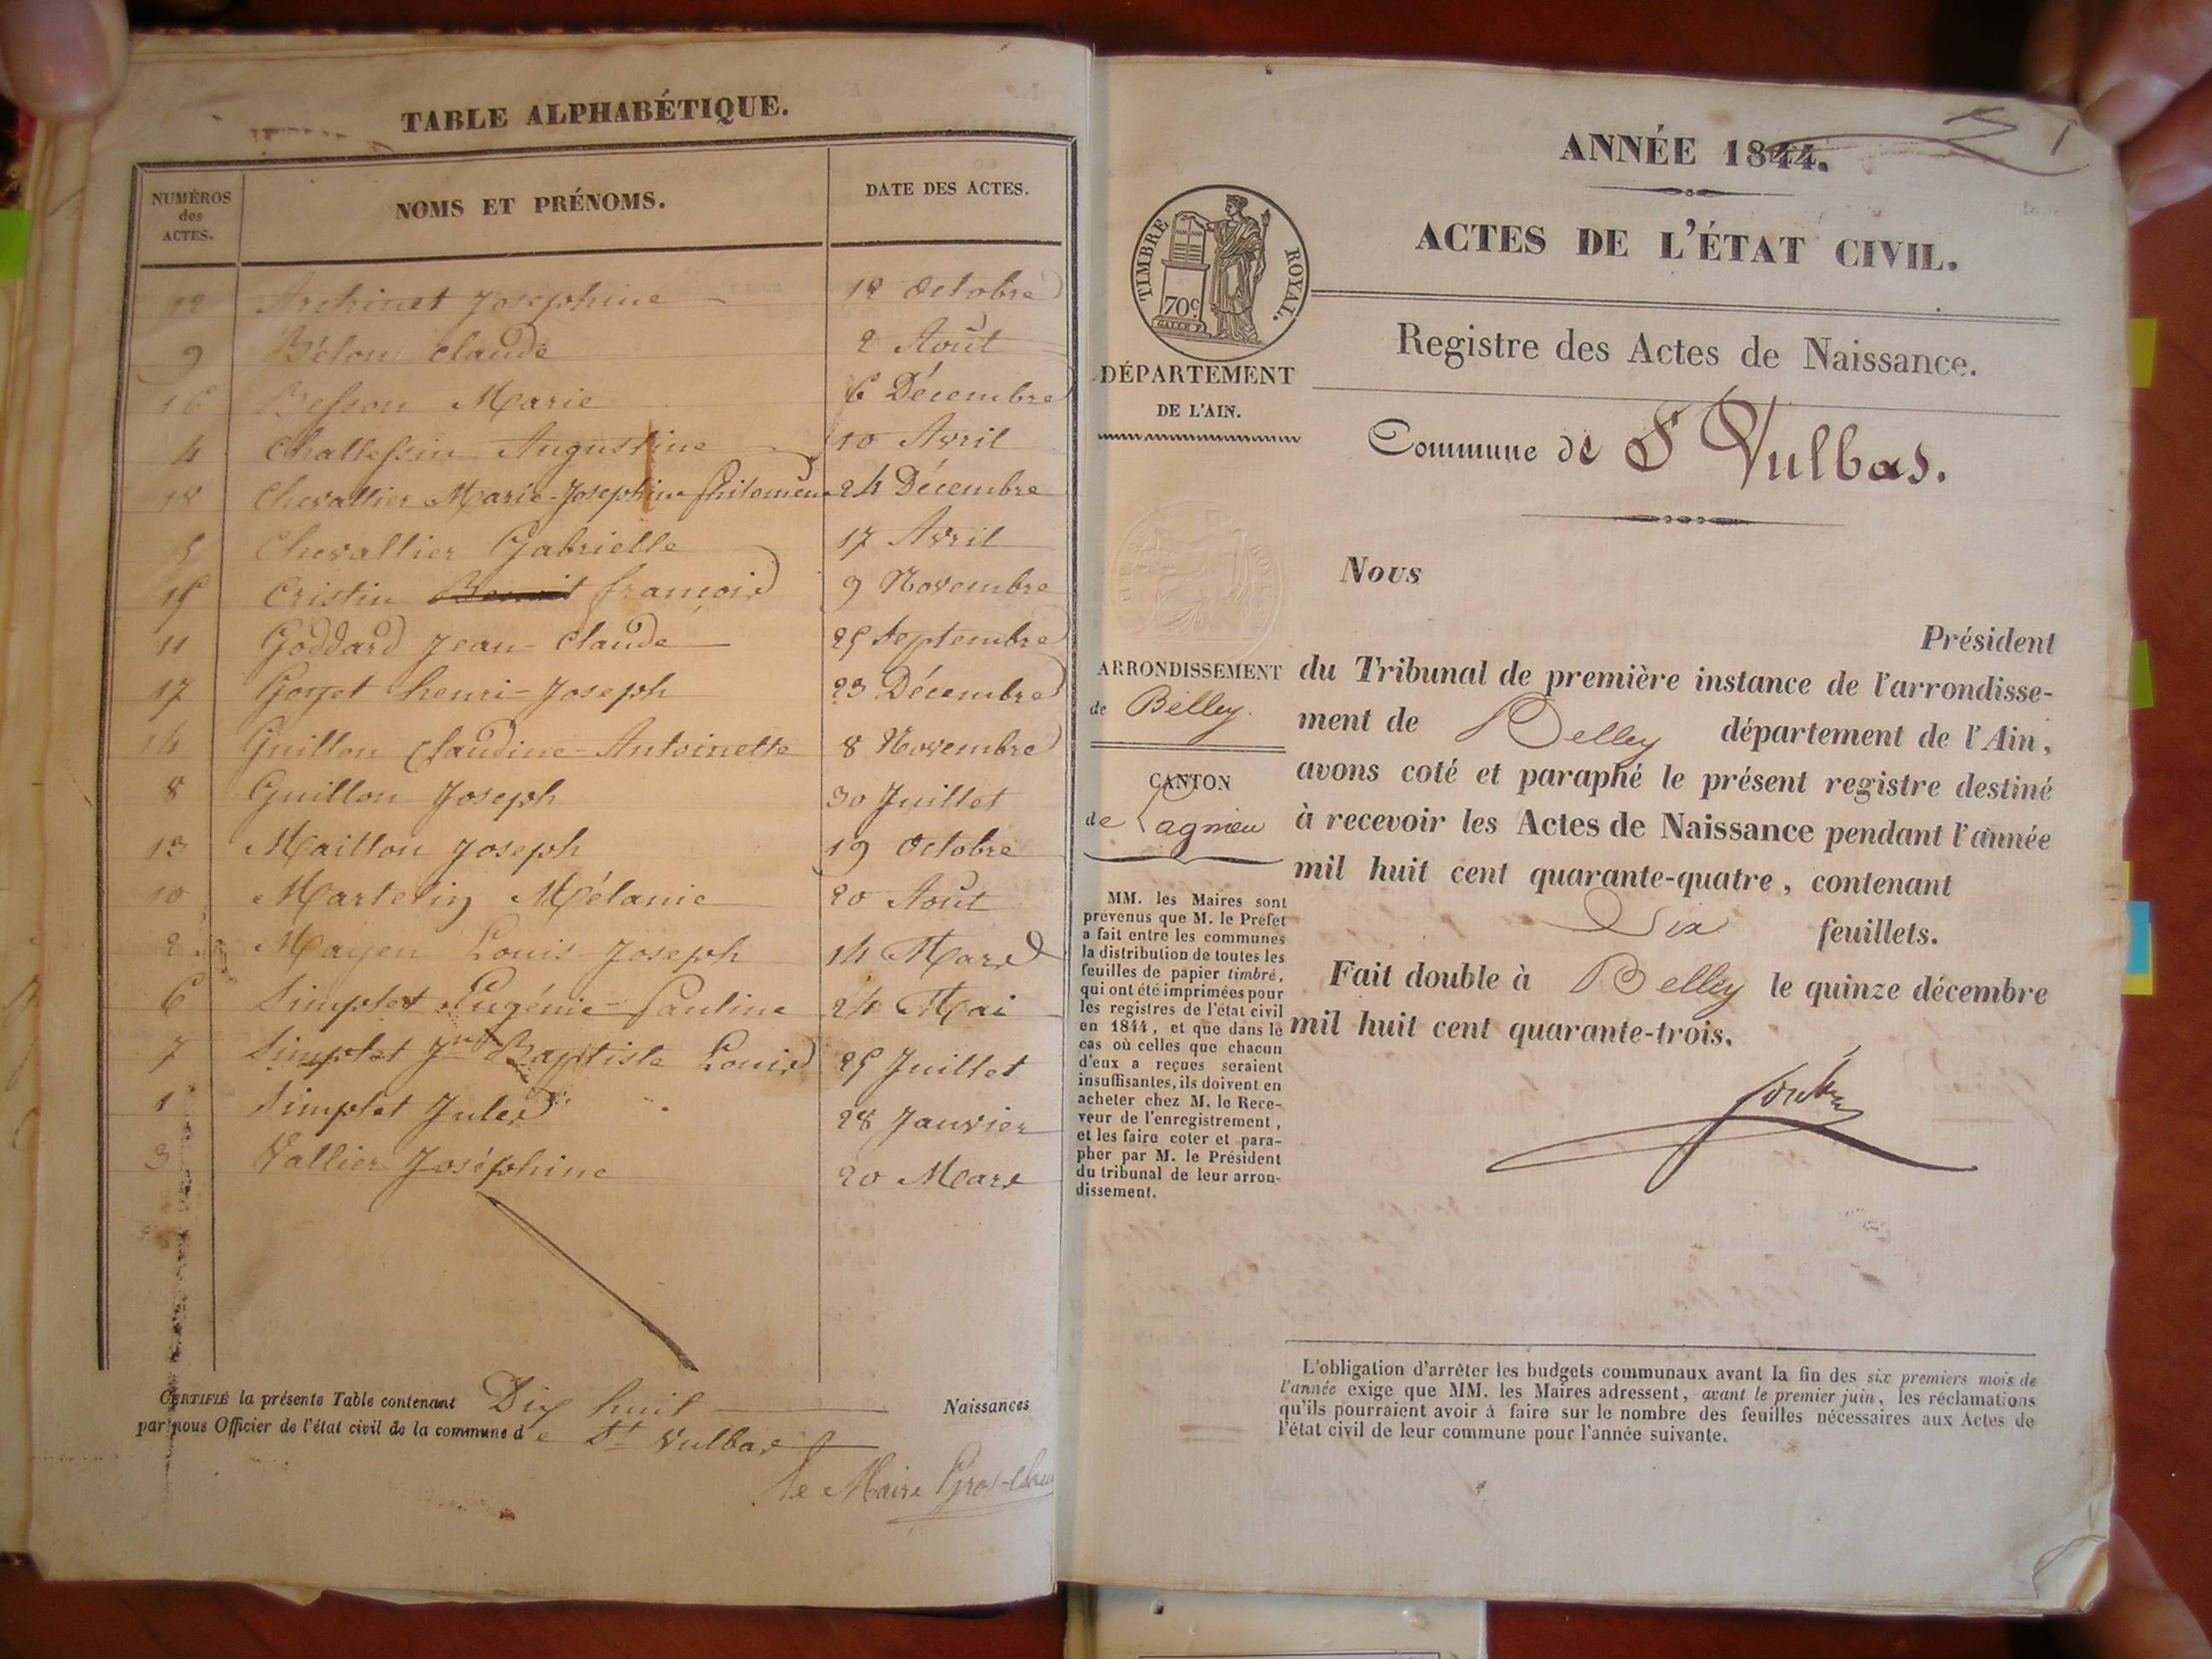 TABLE ALPHABÉTIQUE.
NUMÉROS des ACTES. NOMS ET PRÉNOMS. DATE DES ACTES.
12 Archinet Josephine 12 Octobre
9 Bélon Claude 2 Août
16 Besson Marie 6 Décembre
4 Challessin Augustine 10 Avril
18 Chevallier Marie-Josephine Philomène 24 Décembre
5 Chevallier Gabrielle 17 Avril
15 Cristin Benoit françois 9 Novembre
11 Goddard Jean-Claude 25 Septembre
17 Gorget henri-Joseph 23 Décembre
14 Guillon Claudine-Antoinette 8 Novembre
8 Guillon Joseph 30 Juillet
13 Maillon Joseph 19 Octobre
10 Martelin Mélanie 20 Août
2 Mayen Louis-Joseph 14 Mars
6 Simplet Eugénie-Pauline 24 Mai
7 Simplet Jn Baptiste Louis 25 Juillet
1 Simplet Jules 28 Janvier
3 Vallier Joséphine 20 Mars
CERTIFIÉ la présente Table contenant Dix huit Naissances
par nous Officier de l'état civil de la commune de St Vulbas
Le Maire
1
ANNÉE 1844.
ACTES DE L'ÉTAT CIVIL.
Registre des Actes de Naissance.
Commune de St Vulbas.
TIMBRE ROYAL.
70c
DÉPARTEMENT
DE L'AIN.
ARRONDISSEMENT
de Belley.
CANTON
de Lagnieu
MM. les Maires sont
prévenus que M. le Préfet
a fait entre les communes
la distribution de toutes les
feuilles de papier timbré,
qui ont été imprimées pour
les registres de l'état civil
en 1844, et que dans le
cas où celles que chacun
d'eux a reçues seraient
insuffisantes, ils doivent en
acheter chez M. le Rece-
veur de l'enregistrement,
et les faire coter et para-
pher par M. le Président
du tribunal de leur arron-
dissement.
Nous
Président
du Tribunal de première instance de l'arrondisse-
ment de Belley département de l'Ain,
avons coté et paraphé le présent registre destiné
à recevoir les Actes de Naissance pendant l'année
mil huit cent quarante-quatre, contenant
Six feuillets.
Fait double à Belley le quinze décembre
mil huit cent quarante-trois.
L'obligation d'arrêter les budgets communaux avant la fin des six premiers mois de
l'année exige que MM. les Maires adressent, avant le premier juin, les réclamations
qu'ils pourraient avoir à faire sur le nombre des feuilles nécessaires aux Actes de
l'état civil de leur commune pour l'année suivante.